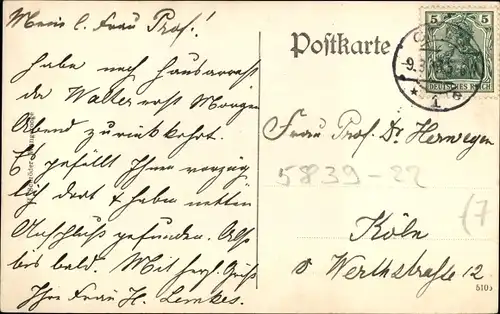 Meine l. Frau Prof.!
habe noch
da Walter erst Morgen
Abend zurück kehrt.
Es gefällt Ihnen vorzüg
lich dort & haben netten
Anschluß gefunden. Also
bis bald. Mit herzl. Gruß
Ihre Frau H. Lemkes.
Postkarte
5
5
DEUTSCHES REICH
-9.3.
* 1 e
Frau Prof. Dr. Herwegen
5839-22
(7
Köln
Werthstraße 12
5105